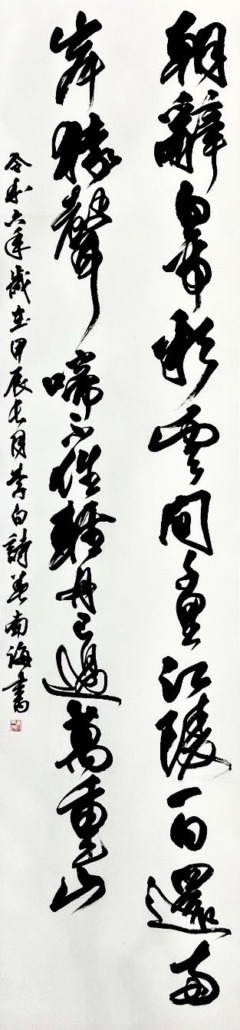 朝辭白帝彩雲間千里江陵一日還兩
岸猿聲啼不住輕舟已過萬重山
令和六年歲在甲辰月李白詩南海書